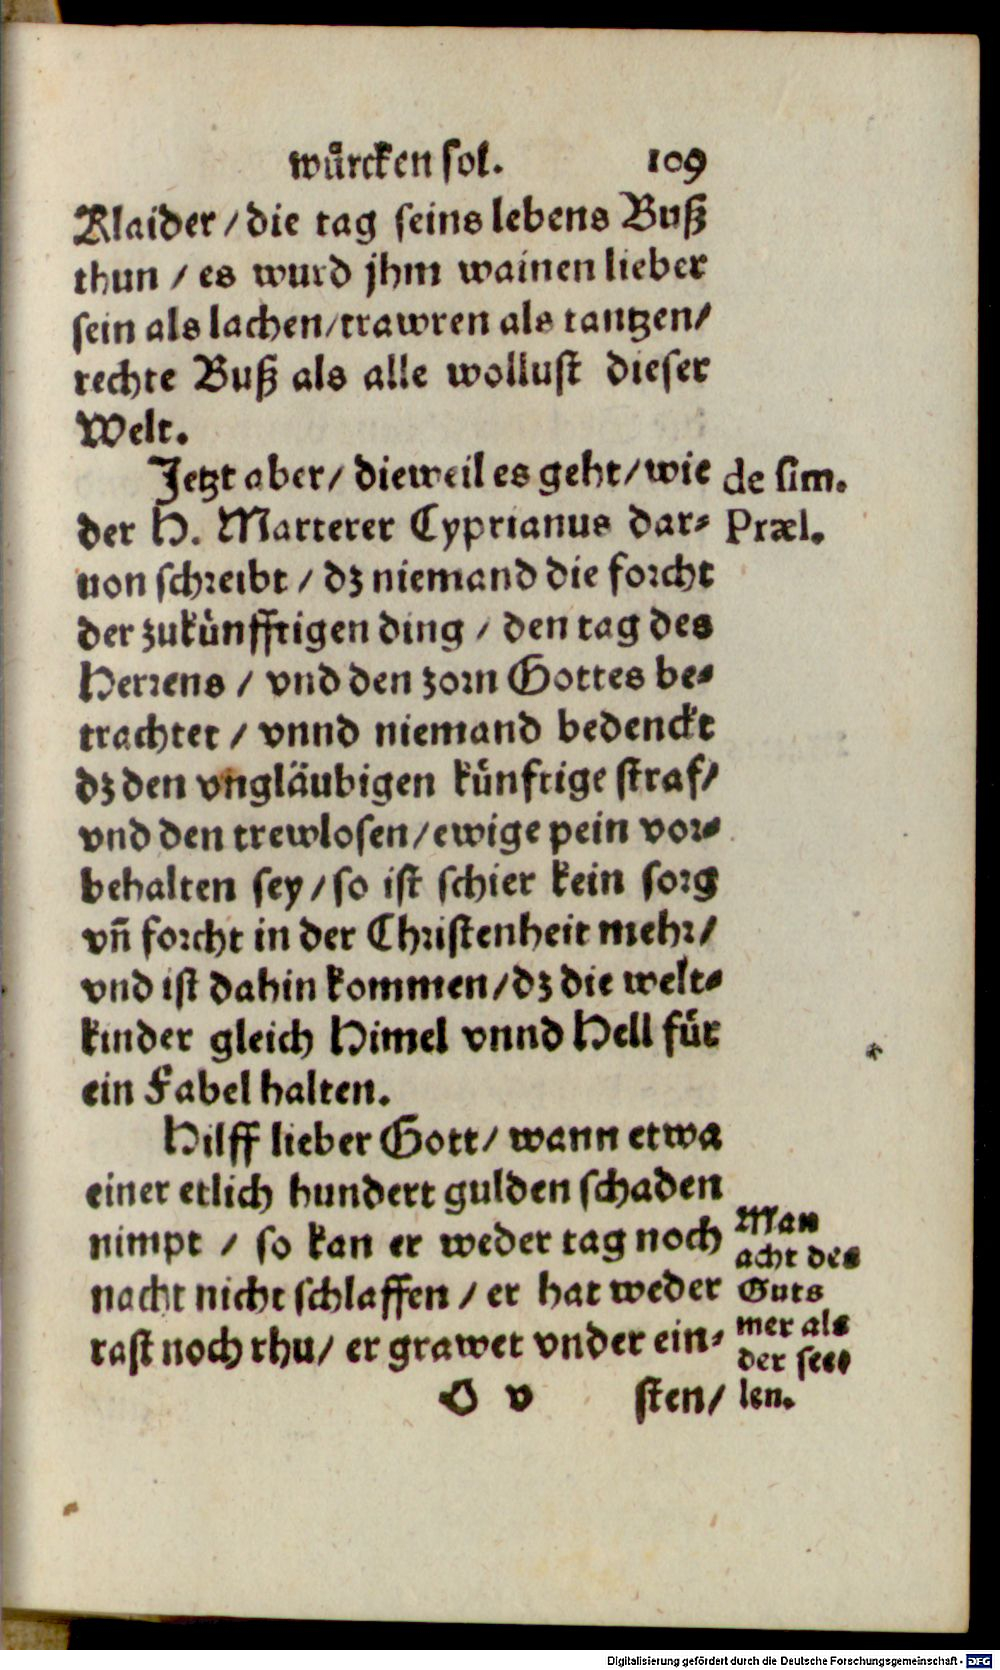 würcken sol. 109
Klaider / die tag seins lebens Buß
thun / es wurd jhm wainen lieber
sein als lachen/trawren als tantzen/
rechte Buß als alle wollust dieser
Welt.
Jetzt aber / dieweil es geht / wie
der H. Marterer Cyprianus dar-
uon schreibt / dz niemand die forcht
der zukünfftigen ding / den tag des
Herrens / vnd den zorn Gottes be-
trachtet / vnnd niemand bedenckt
dz den vngläubigen künftige straf/
vnd den trewlosen/ewige pein vor-
behalten sey / so ist schier kein sorg
vñ forcht in der Christenheit mehr/
vnd ist dahin kommen/dz die welt-
kinder gleich Himel vnnd Hell für
ein Fabel halten.
Hilff lieber Gott/ wann etwa
einer etlich hundert gulden schaden
nimpt / so kan er weder tag noch
nacht nicht schlaffen / er hat weder
rast noch rhu/ er grawet vnder ein-
O v sten/
de sim.
Præl.
Man
acht des
Guts
mer als
der see-
len.
Digitalisierung gefördert durch die Deutsche Forschungsgemeinschaft - DFG